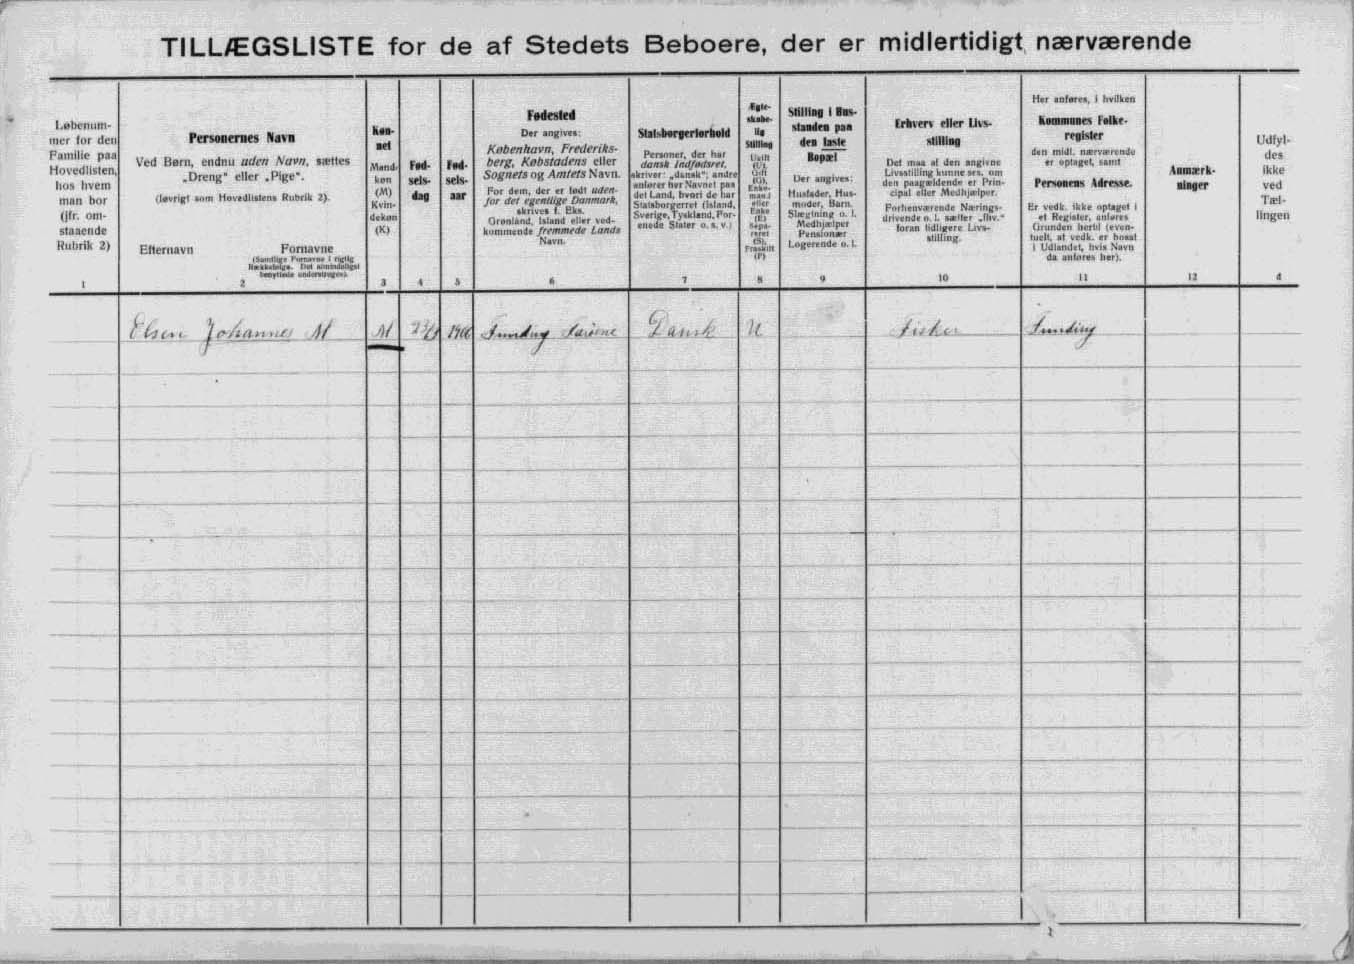 TILLÆGSLISTE for de af Stedets Beboere, der er midlertidigt nærværende
Løbenum-
mer for den
Familie paa
Hovedlisten,
hos hvem
man bor
(jfr. om-
staaende
Rubrik 2)
1
Personernes Navn
Ved Børn, endnu uden Navn, sættes
„Dreng" eller „Pige".
(Iøvrigt som Hovedlistens Rubrik 2).
Efternavn Fornavne
(Samtlige Fornavne i rigtig
Rækkefølge. Det almindeligst
benyttede understreges).
2
Køn-
net
Mand-
køn
(M)
Kvin-
dekøn
(K)
3
Fød-
sels-
dag
4
Fød-
sels-
aar
5
Fødested
Der angives:
København, Frederiks-
berg, Købstadens eller
Sognets og Amtets Navn.
For dem, der er født uden-
for det egentlige Danmark,
skrives f. Eks.
Grønland, Island eller ved-
kommende fremmede Lands
Navn.
6
Statsborgerforhold
Personer, der har
dansk Indfødsret,
skriver: „dansk"; andre
anfører her Navnet paa
det Land, hvori de har
Statsborgerret (Island,
Sverige, Tyskland, For-
enede Stater o. s. v.)
7
Ægte-
skabe-
lig
Stilling
Ugift
(U),
Gift
(G),
Enke-
mand
eller
Enke
(E)
Sepa-
reret
(S),
Fraskilt
(F)
8
Stilling i Hus-
standen paa
den faste
Bopæl
Der angives:
Husfader, Hus-
moder, Barn,
Slægtning o. l.
Medhjælper
Pensionær
Logerende o. l.
9
Erhverv eller Livs-
stilling
Det maa af den angivne
Livsstilling kunne ses, om
den paagældende er Prin-
cipal eller Medhjælper.
Forhenværende Nærings-
drivende o. l. sætter „fhv."
foran tidligere Livs-
stilling.
10
Her anføres, i hvilken
Kommunes Folke-
register
den midl. nærværende
er optaget, samt
Personens Adresse.
Er vedk. ikke optaget i
et Register, anføres
Grunden hertil (even-
tuelt, at vedk. er bosat
i Udlandet, hvis Navn
da anføres her).
11
Anmærk-
ninger
12
Udfyl-
des
ikke
ved
Tæl-
lingen
d
Elsen Johannes M M 1900 Funding Færøene Dansk U Fisker Funding